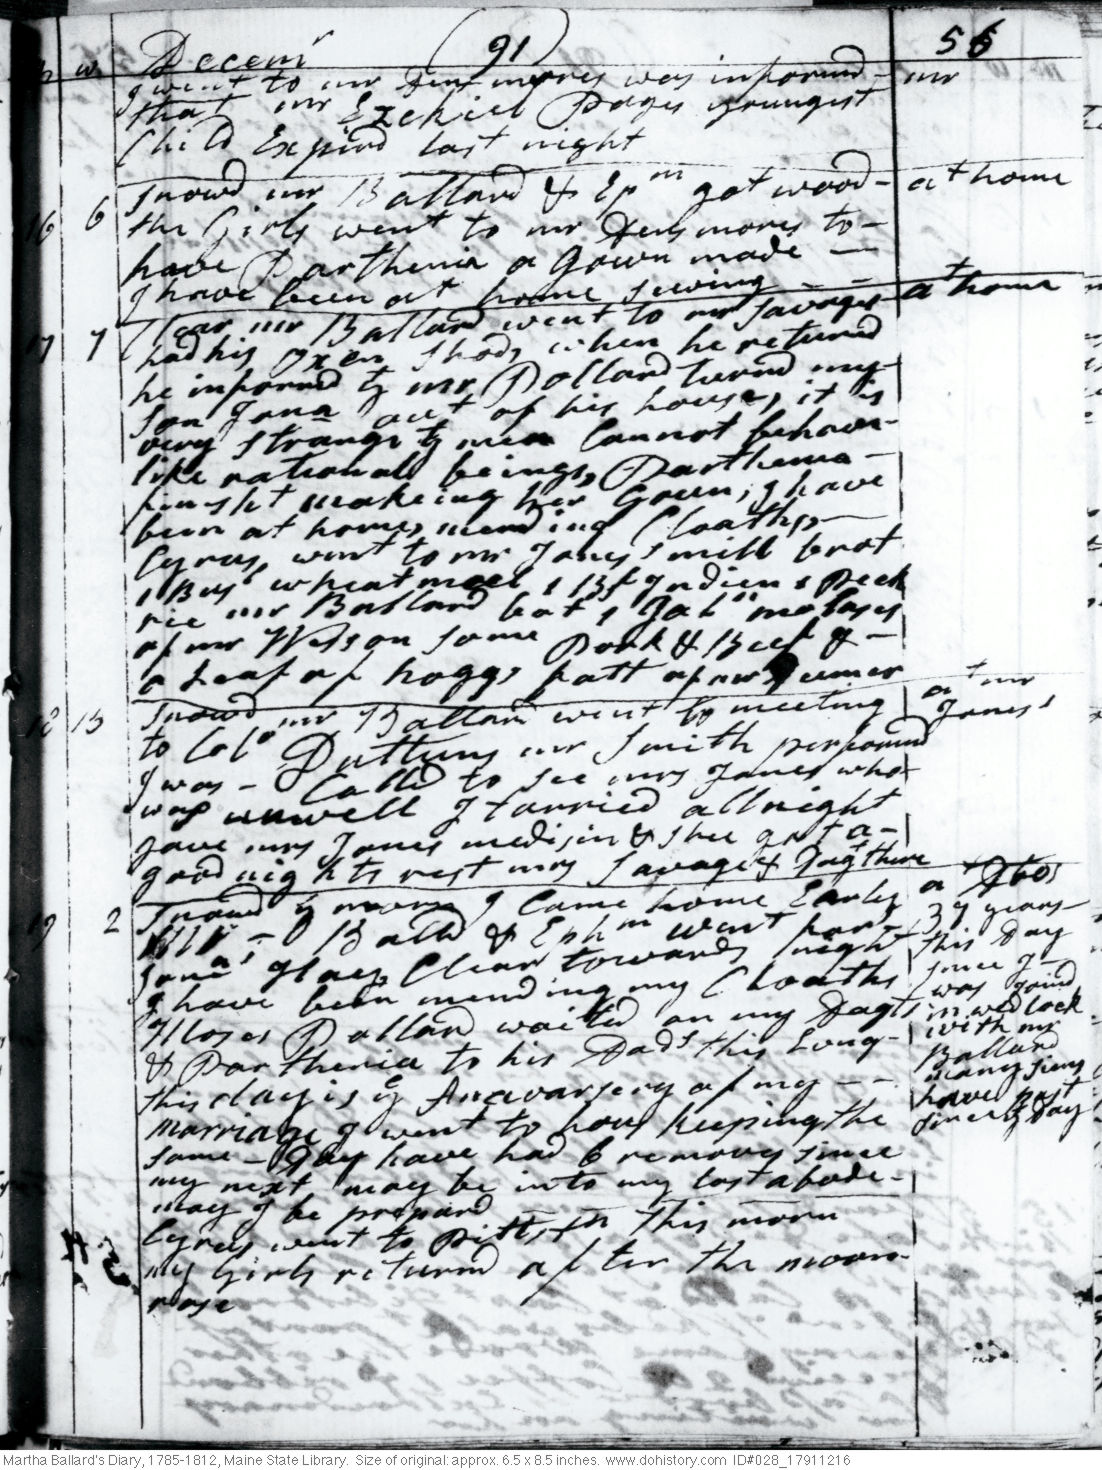 m w Decemr (91) 56
I went to mr Densmores was informd - mr
that mr Ezekiel Pages youngest
Child Expird last night
16 6 snowd mr Ballard & Epm got wood - at home
the Girls went to mr Densmores to -
have Parthenia a Gown made —
I have been at home sewing - -
17 7 Clear mr Ballard went to mr Savages at home
had his oxen shod, when he returnd
he informd yt mr Pollard turnd my
son Jona out of his house, it is
very strange yt men Cannot behave -
like rational beings, Parthenia -
finisht makeing her Gown, I have
been at home, mending Cloaths, -
Cyrus, went to mr Jones s mill brot
1 Busl wheat meal 1 Indien 1 Peck
rie mr Ballard bot 1 Galn molases
of mr Wesson some Pork & Beef &
a Leaf of hoggs fatt of mr
18 B snowd mr Ballard went to meeting at mr
to Colo Duttuns mr Smith performd Jones s
I was - Calld to see mrs Jones who
was unwell I tarried all night
gave mrs Jones medisin & shee got a -
good nights rest mrs Savage & Dagt there
19 2 snowd ye morn I Came home Early at Do
mr Balld & Ephm went for 37 years
Jonas Clear towards night this Day
I have been mending my Cloaths since I
Moses Pollard waited on my Dagts was joind
& Parthenia to his Dads this Evng - in wedlock
this day is ye Anevarsery of my - - with mr
marriage I went to hous keeping the Ballard
same - Day have had 6 removs since many siens
my next may be into my last abode - have past
may I be prepard since ye Day
Cyrus went to Pittstn this morn
my Girls returnd after the moon
rose
Martha Ballard's Diary, 1785-1812, Maine State Library. Size of original: approx. 6.5 x 8.5 inches. www.dohistory.com ID#028_17911216